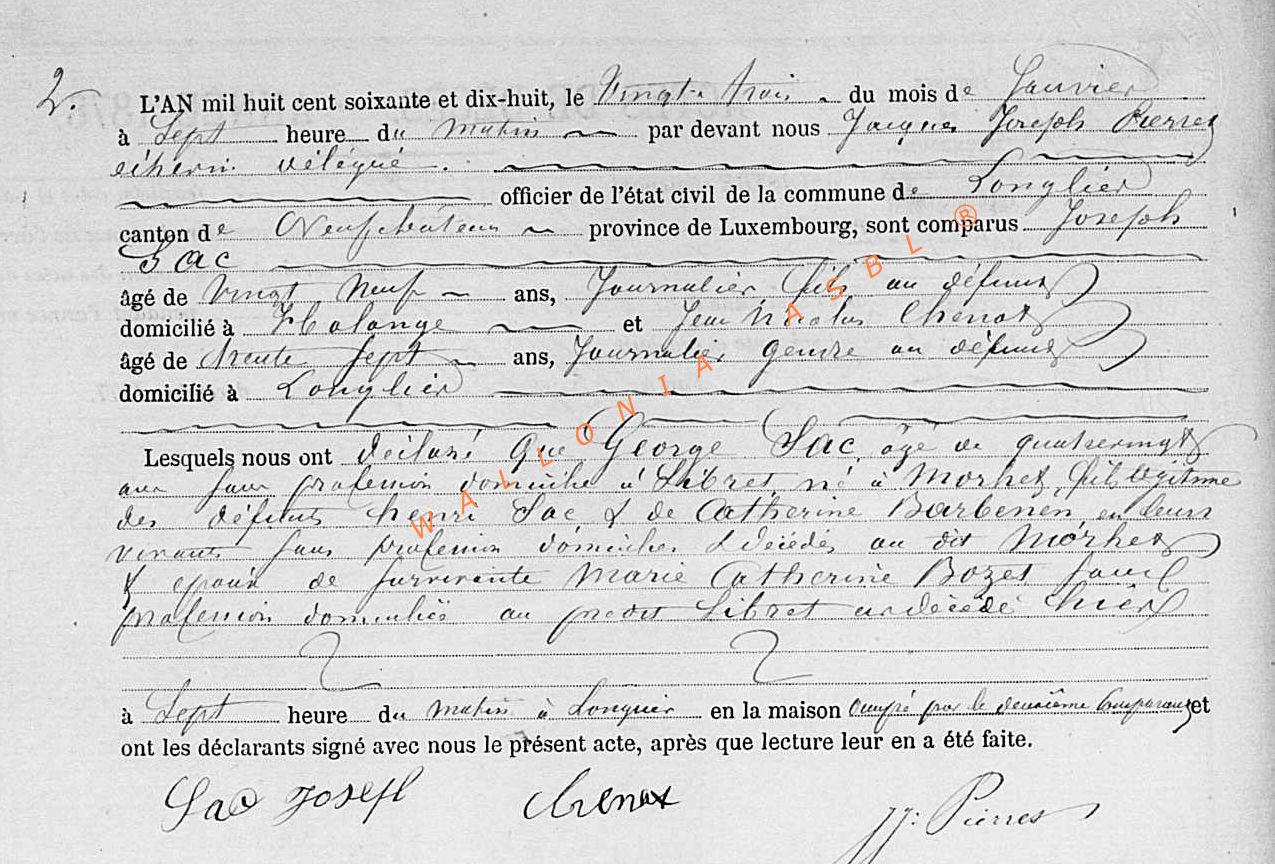 2. L'AN mil huit cent soixante et dix-huit, le Vingt trois du mois de Janvier
à Sept heure du matin par devant nous Jacques Joseph Pierret
échevin délégué.
officier de l'état civil de la commune de Longlier
canton de Neufchâteau province de Luxembourg, sont comparus Joseph
Sac
âgé de Vingt Neuf ans, Journalier fils au défunt
domicilié à et Jean Nicolas Chenot
âgé de trente sept ans, Journalier gendre au défunt
domicilié à Longlier
Lesquels nous ont déclaré que George Sac, âgé de quatrevingt
ans sans profession domicilié à Libret, né à Morhet, fils légitime
des défunts henri Sac & de Catherine Barbenen, en leurs
vivants sans profession domiciliés & décédés au dit Morhet
& époux de survivante Marie Catherine Bozet sans
profession domiciliée au predit Libret est décédé hier
à Sept heure du matin à Longlier en la maison occupé par le deuxième Comparant et
ont les déclarants signé avec nous le présent acte, après que lecture leur en a été faite.
Sac Joseph Chenot JJ: Pierret
WALLONIA ASBL ®